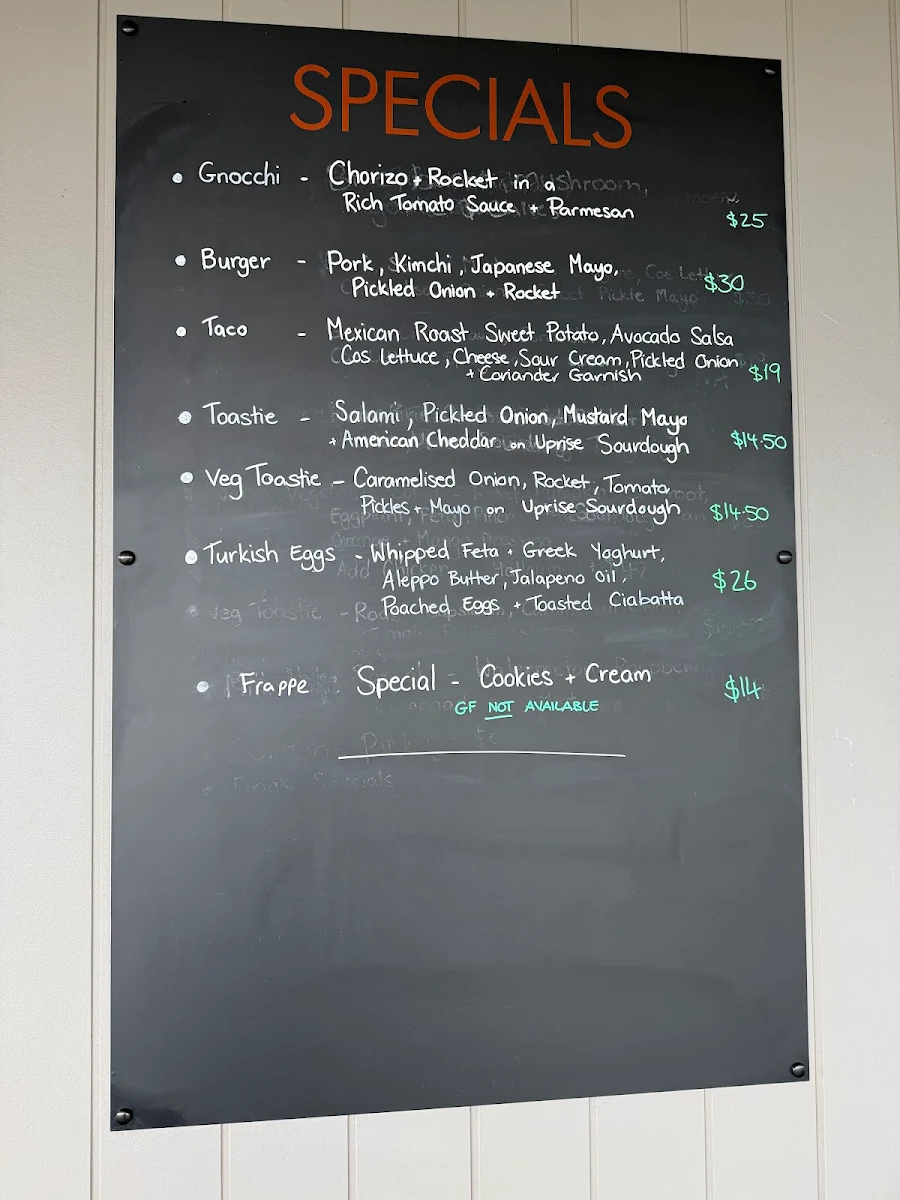 SPECIALS
• Gnocchi - Chorizo + Rocket in a
Rich Tomato Sauce + Parmesan
$25
• Burger - Pork, Kimchi, Japanese Mayo,
$30
Pickled Onion + Rocket
• Taco - Mexican Roast Sweet Potato, Avocado Salsa
Cos Lettuce, Cheese, Sour Cream, Pickled Onion
+ Coriander Garnish
$19
• Toastie - Salami, Pickled Onion, Mustard Mayo
+ American Cheddar on Uprise Sourdough
$14.50
• Veg Toastie - Caramelised Onion, Rocket, Tomato,
Pickles + Mayo on Uprise Sourdough
$14.50
• Turkish Eggs - Whipped Feta + Greek Yoghurt,
Aleppo Butter, Jalapeno Oil,
$26
Poached Eggs + Toasted Ciabatta
• Veg Toastie
• Frappe Special - Cookies + Cream
$14
GF NOT AVAILABLE
• Drink Specials